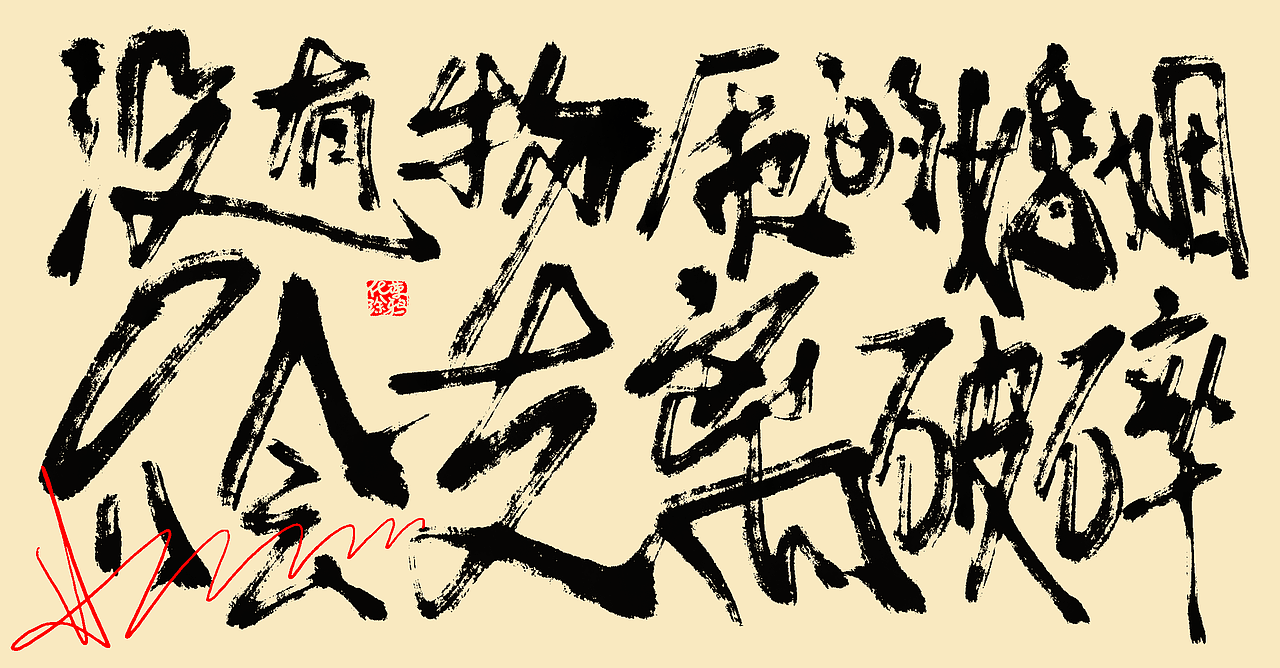 没有物质的婚姻
只会支离破碎